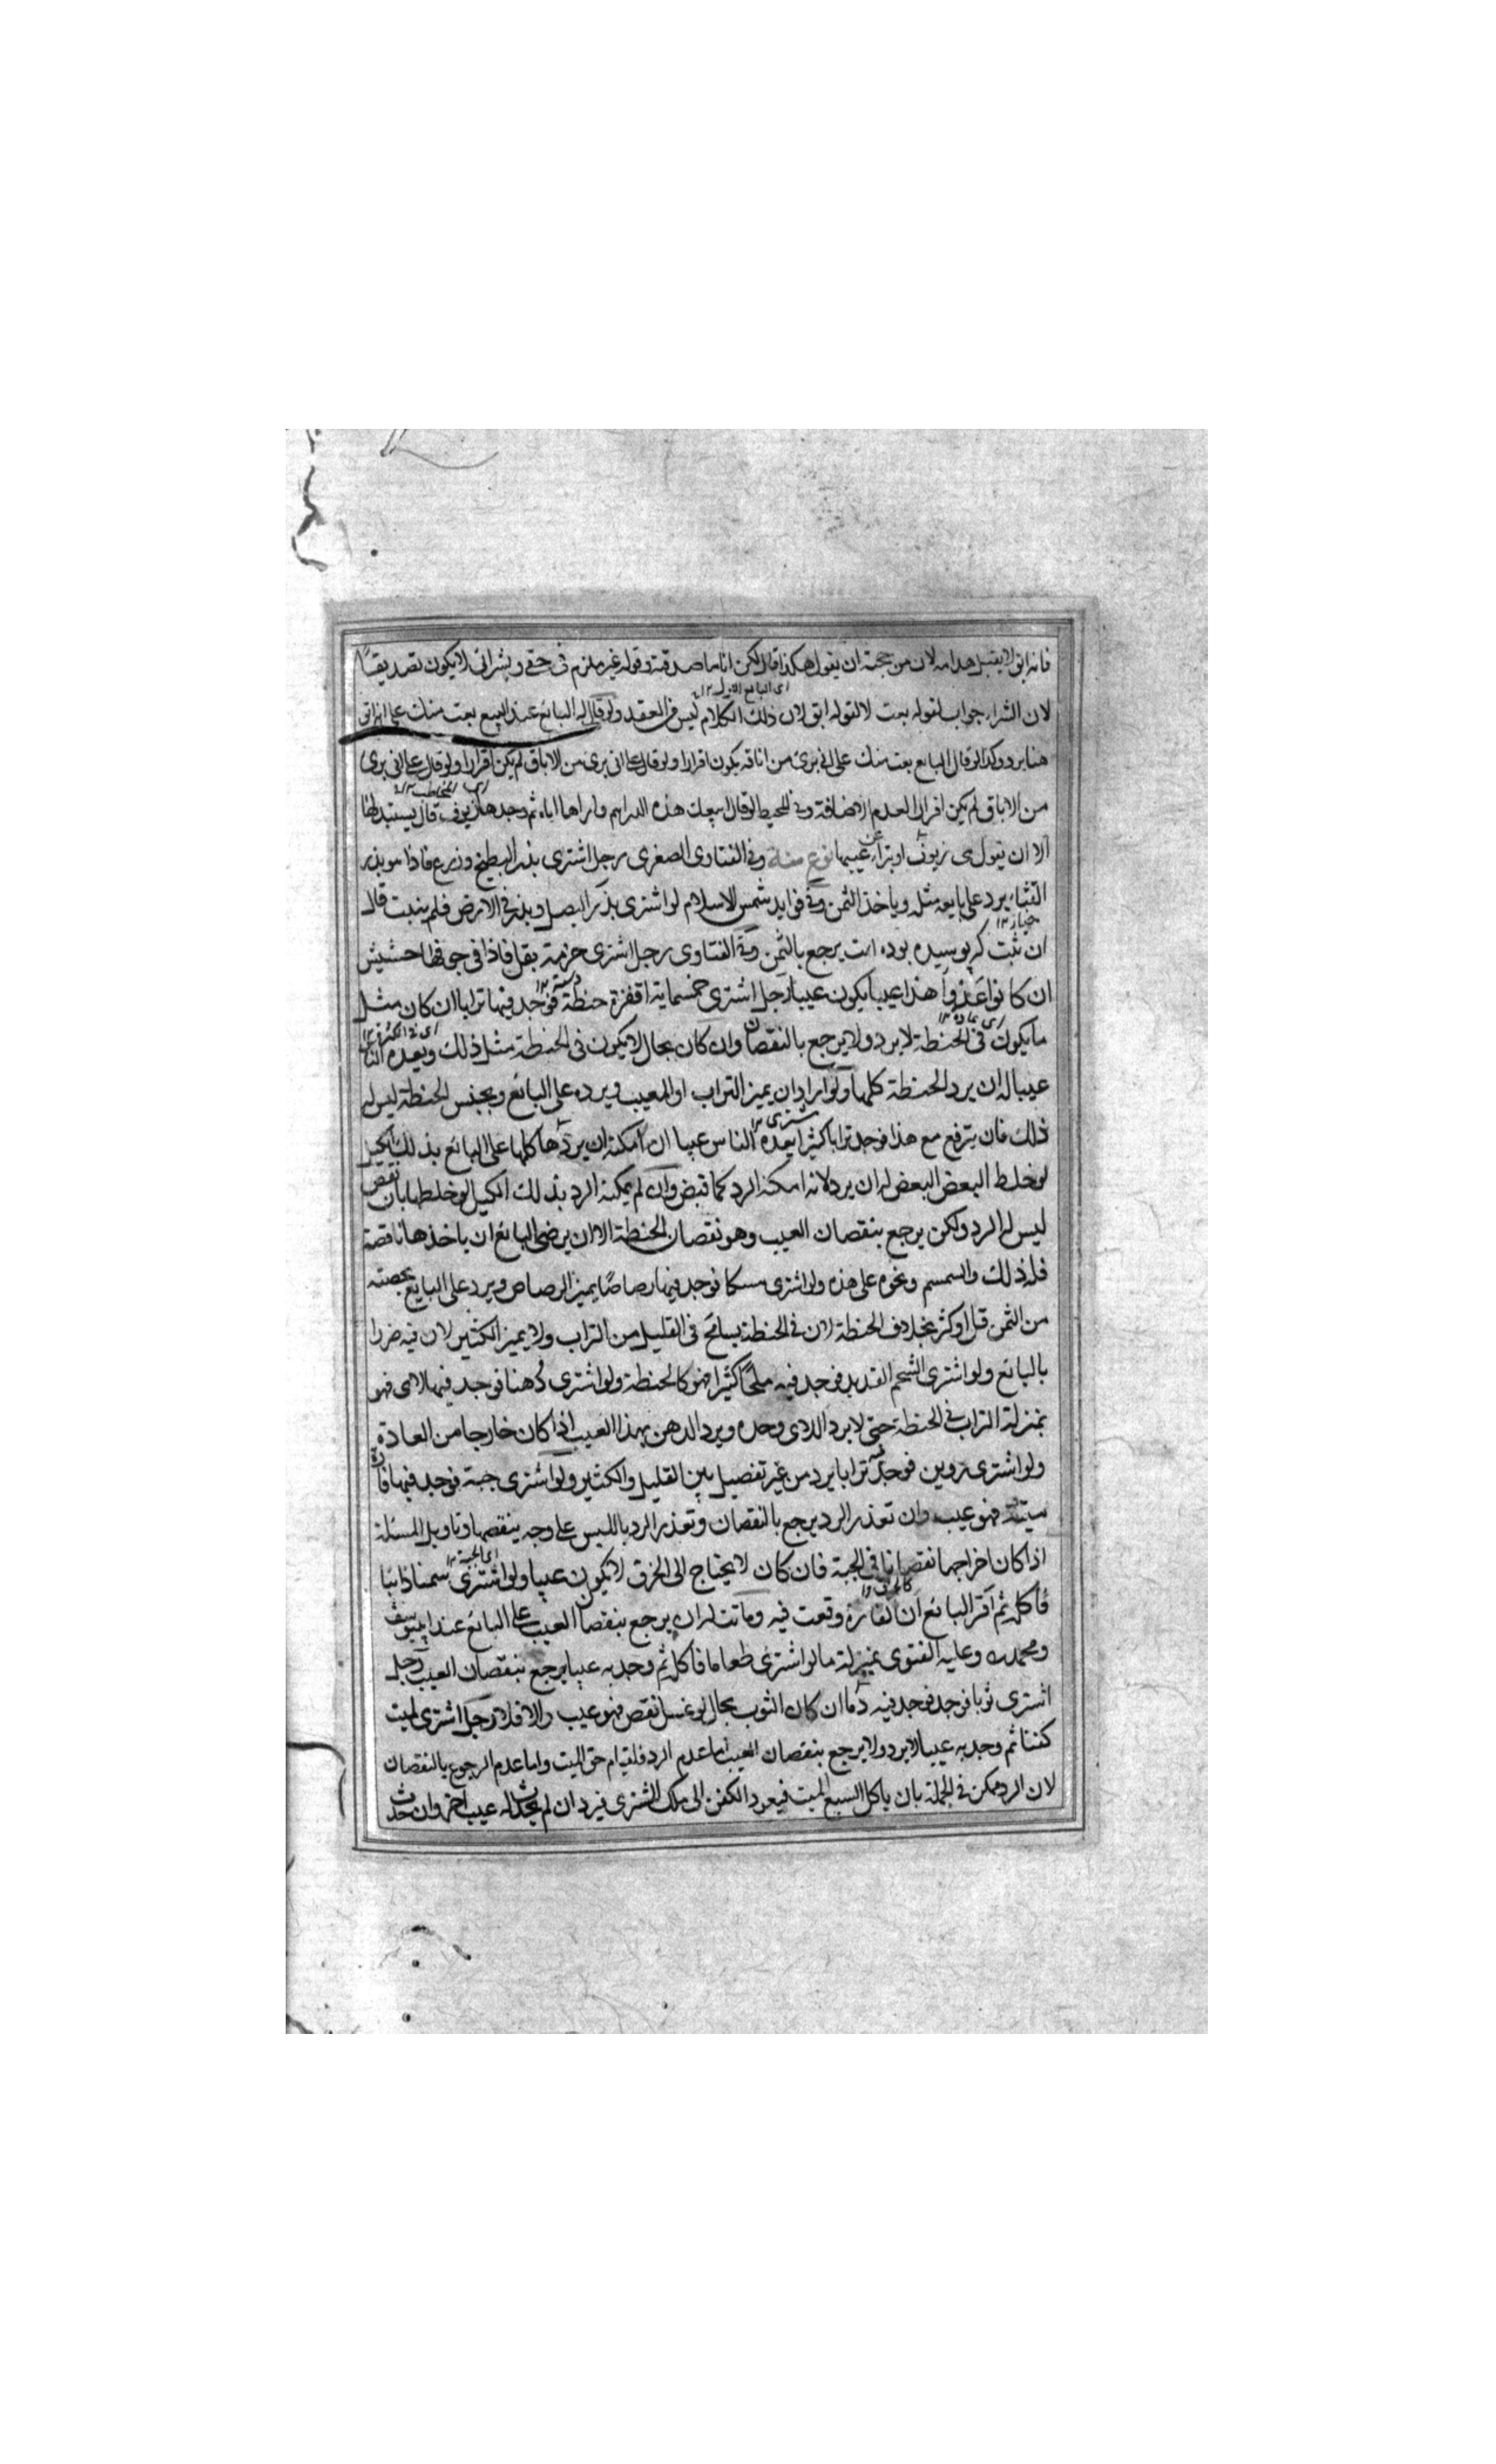 فانه ابق لا يقبل هذا منه لان من حجته ان يقول هكذا قال لكن انا ما صدقته وقوله غير ملزم في حقي وبشرائي لا يكون تصديقا
اى البائع الاول ١٢
لان الشراء جواب لقوله بعت لا لقوله ابق لان ذلك الكلام ليس في العقد ولو قال له البائع عند البيع بعت منك على انه ابق
هنا يرد وكذا لو قال البائع بعت منك على انى برئ من اباقه يكون اقرارا ولو قال على انى برئ من الاباق لم يكن اقرارا ولو قال على انى برئ
من الاباق لم يكن اقرارا لعدم الاضافة وفي المحيط لو قال ابيعك هذه الدراهم واراها اياه ثم وجدها زيوف قال يستبدلها
الا ان يقول هى زيوف او يتبرأ عن عيبها نوع منه وفي الفتاوى الصغرى رجل اشترى بذر البطيخ وزرع فاذا هو بذر
القثاء يرد على بايعه مثله وياخذ الثمن وفي فوايد شمس الاسلام لو اشترى بذر البصل وبذر في الارض فلم ينبت قال
خيار ١٢
ان ثبت كه پوسيده بوده است يرجع بالثمن وفي الفتاوى رجل اشترى حزمة بقل فاذا فى جوفها حشيش
ان كانوا عدوا هذا عيبا يكون عيبا رجل اشترى خمسماية اقفزة حنطة فوجد فيها ترابا ان كان مثل
ما يكون في الحنطة لا يرد ولا يرجع بالنقصان وان كان بحال لا يكون في الحنطة مثل ذلك ويعده الناس
عيبا له ان يرد الحنطة كلها ولو اراد ان يميز التراب او المعيب ويرده على البائع ويحبس الحنطة ليس له
مشترى ١٢
ذلك فان مع هذا فوجد ترابا كثيرا يعده الناس عيبا ان امكنه ان يردها كلها على البائع بذلك الكيل
لو خلط البعض البعض له ان يرد لانه امكنه الرد كما قبض وان لم يمكنه الرد بذلك الكيل لو خلطها بان نقص
ليس له الرد ولكن يرجع بنقصان العيب وهو نقصان الحنطة الا ان يرضى البائع ان ياخذها ناقصة
فله ذلك والسمسم ونحوه على هذه ولو اشترى مسكا فوجد فيها رصاصا يميز الرصاص ويرد على البايع بحصته
من الثمن قل او كثر بخلاف الحنطة لان في الحنطة يسامح في القليل من التراب ولا يميز الكثير لان فيه ضررا
بالبائع ولو اشترى الشحم القديد فوجد فيه ملحا كثيرا فهو كالحنطة ولو اشترى دهنا فوجد فيها دردى فهو
بمنزلة التراب في الحنطة حتى لا يرد الدردى وحده ويرد الدهن بهذا العيب اذا كان خارجا من العادة
ولو اشترى فوجد فيه ترابا يرد من غير تفصيل بين القليل والكثير ولو اشترى جبة فوجد فيها فارة
ميتة فهو عيب وان تعذر الرد يرجع بالنقصان وتعذر الرد باللبس على وجه ينقصها وتاويل المسئلة
اى الجبة ١٢
اذا كان اخراجها نقصانا في الجبة فان كان لا يحتاج الى الخرق لا يكون عيبا ولو اشترى سمنا ذائبا
فأكله ثم اقر البائع ان الفارة وقعت فيه وماتت له ان يرجع بنقصان العيب على البائع عند ابى يوسف
ومحمد وعليه الفتوى بمنزلة ما لو اشترى طعاما فاكل ثم وجد به عيبا يرجع بنقصان العيب رجل
اشترى ثوبا فوجد فوجد فيه دما ان كان الثوب بحال لو غسل نقص فهو عيب والا فلا رجل اشترى لميت
كفنا ثم وجد به عيبا لا يرد ولا يرجع بنقصان العيب اما عدم الرد فلقيام حق الميت واما عدم الرجوع بالنقصان
لان الرد ممكن في الجملة بان ياكل السبع الميت فيعود الكفن الى ملك المشترى فيرد ان لم يحدث له عيب اخر وان حدث